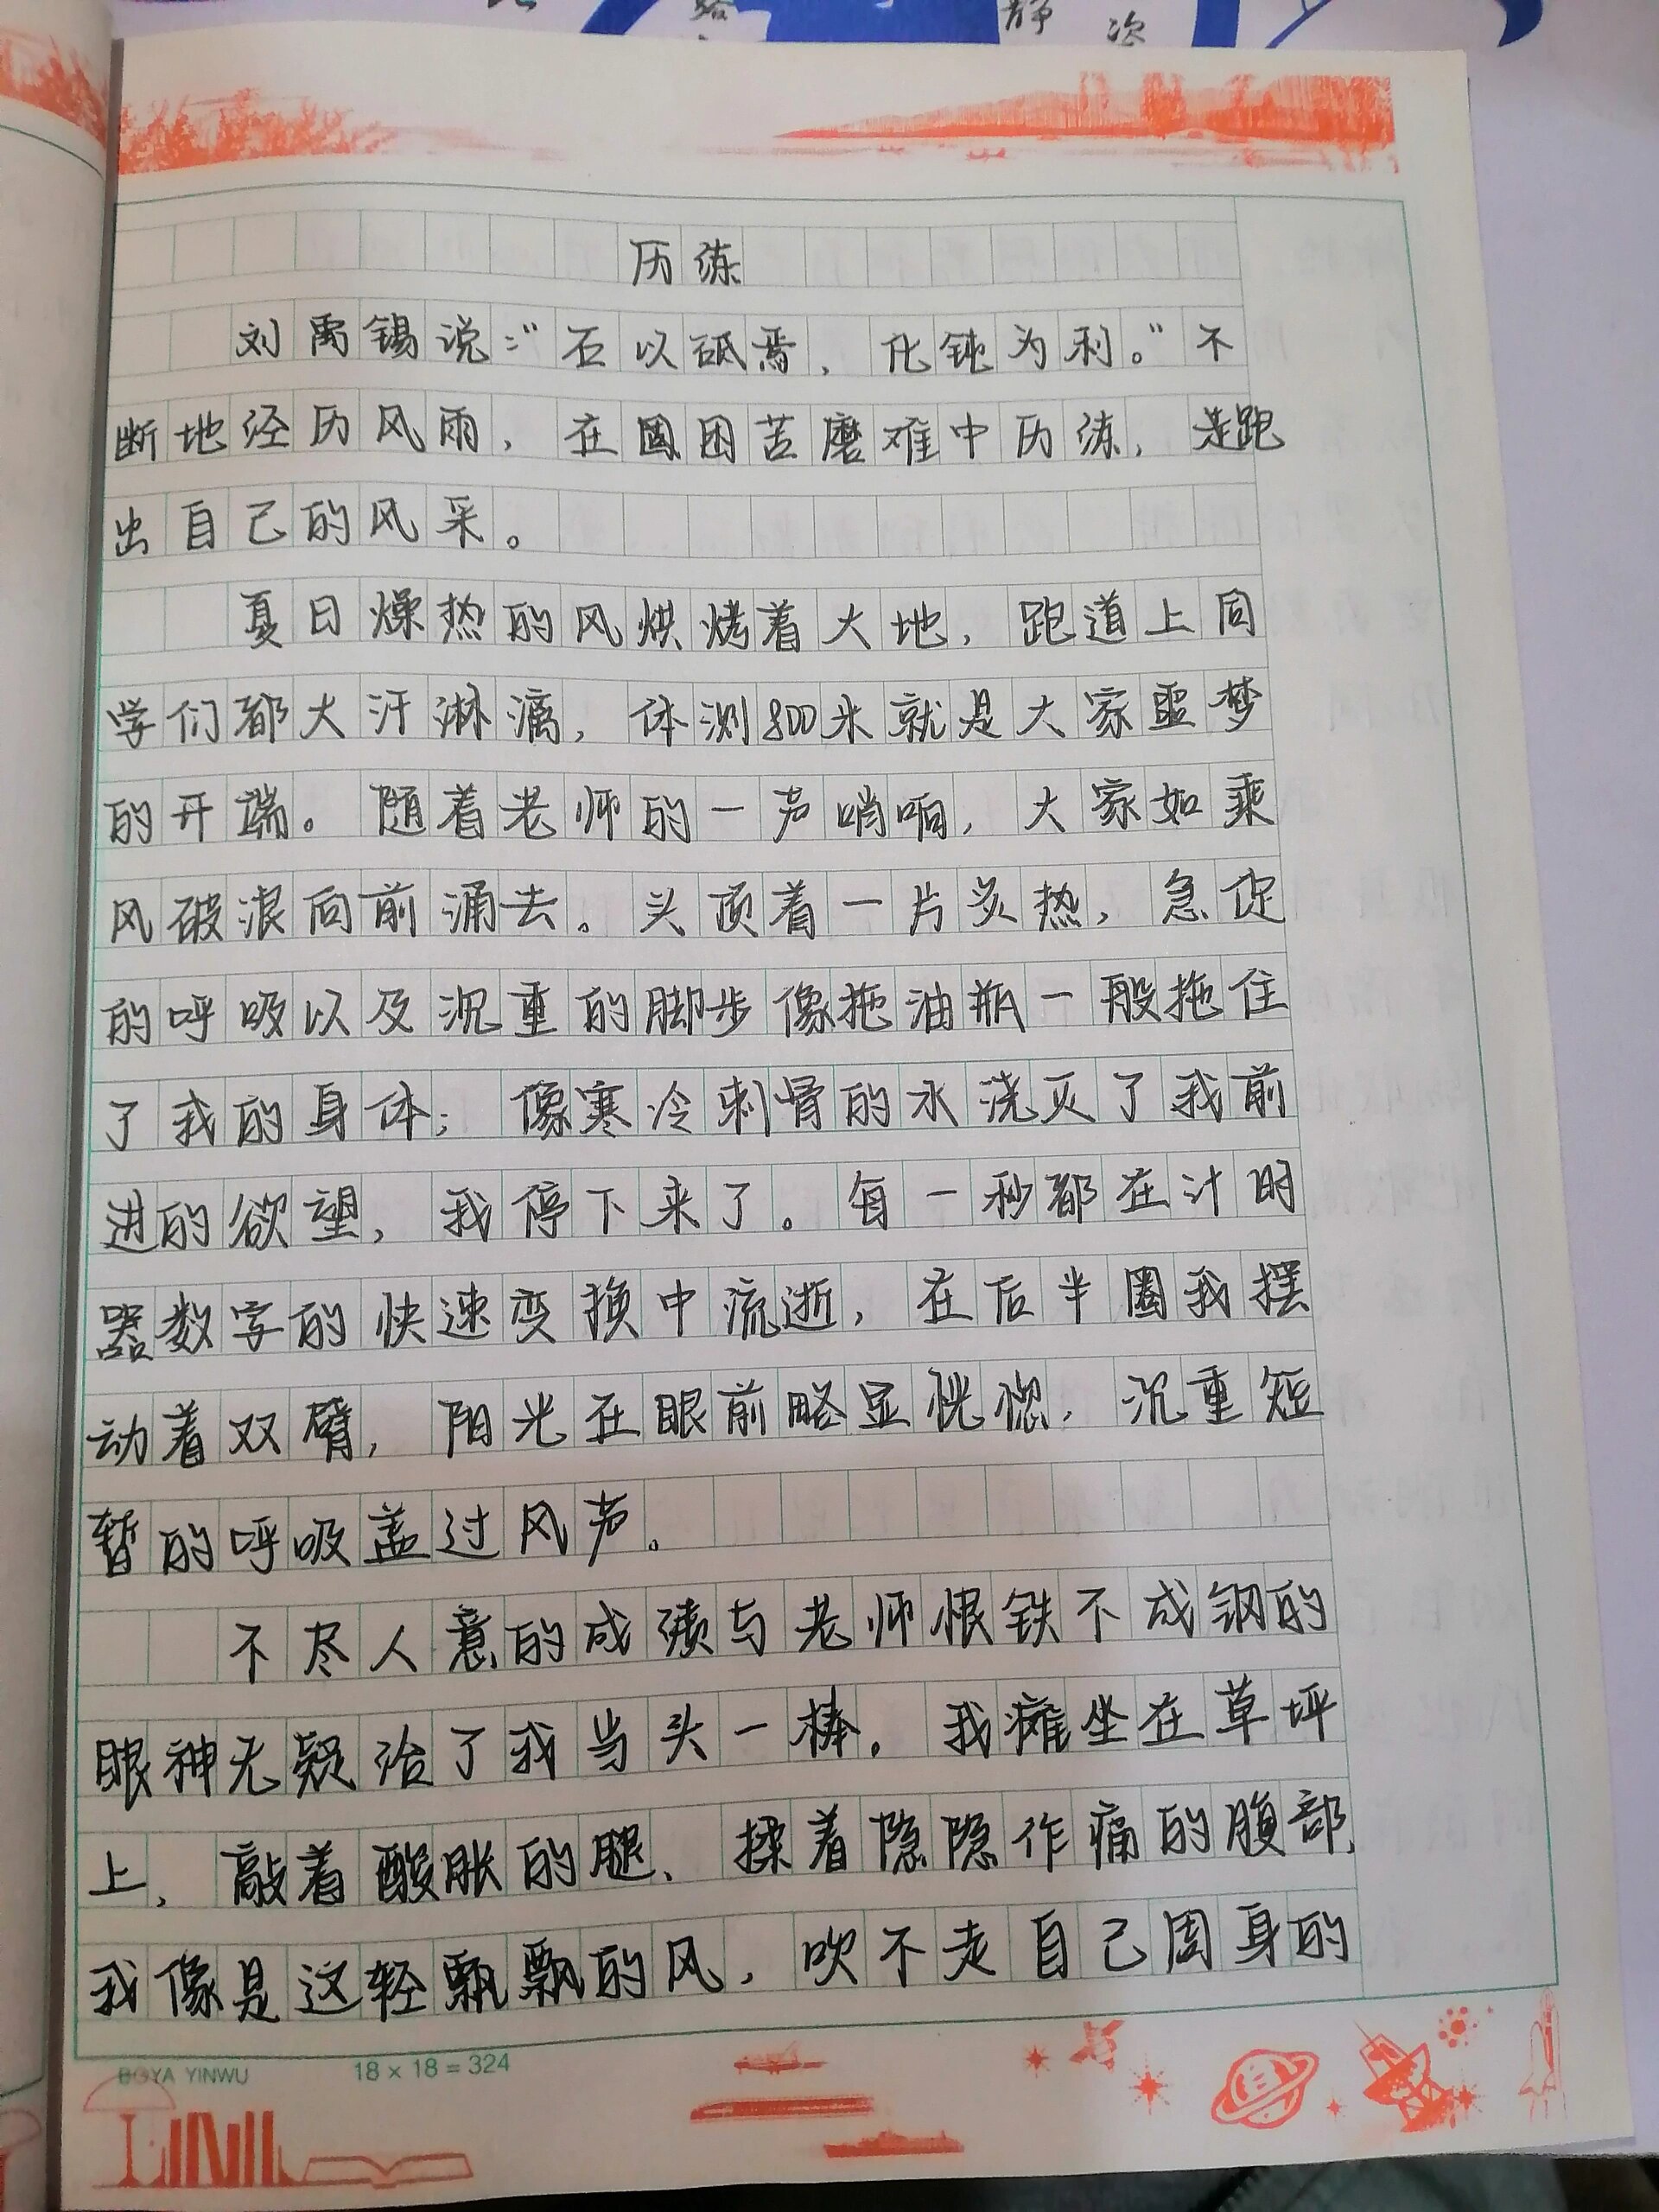 静 次
历练
刘禹锡说:“石以砥焉，化钝为利。”不
断地经历风雨，在困困苦磨难中历练，走跑
出自己的风采。
夏日燥热的风烘烤着大地，跑道上同
学们都大汗淋漓，体测800米就是大家噩梦
的开端。随着老师的一声哨响，大家如乘
风破浪向前涌去。头顶着一片炙热，急促
的呼吸以及沉重的脚步像拖油瓶一般拖住
了我的身体；像寒冷刺骨的水浇灭了我前
进的欲望，我停下来了。每一秒都在计时
器数字的快速变换中流逝，在后半圈我摆
动着双臂，阳光在眼前略显恍惚，沉重短
暂的呼吸盖过风声。
不尽人意的成绩与老师恨铁不成钢的
眼神无疑给了我当头一棒。我瘫坐在草坪
上，敲着酸胀的腿、揉着隐隐作痛的腹部，
我像是这轻飘飘的风，吹不走自己周身的
BOYA YINWU 18×18=324